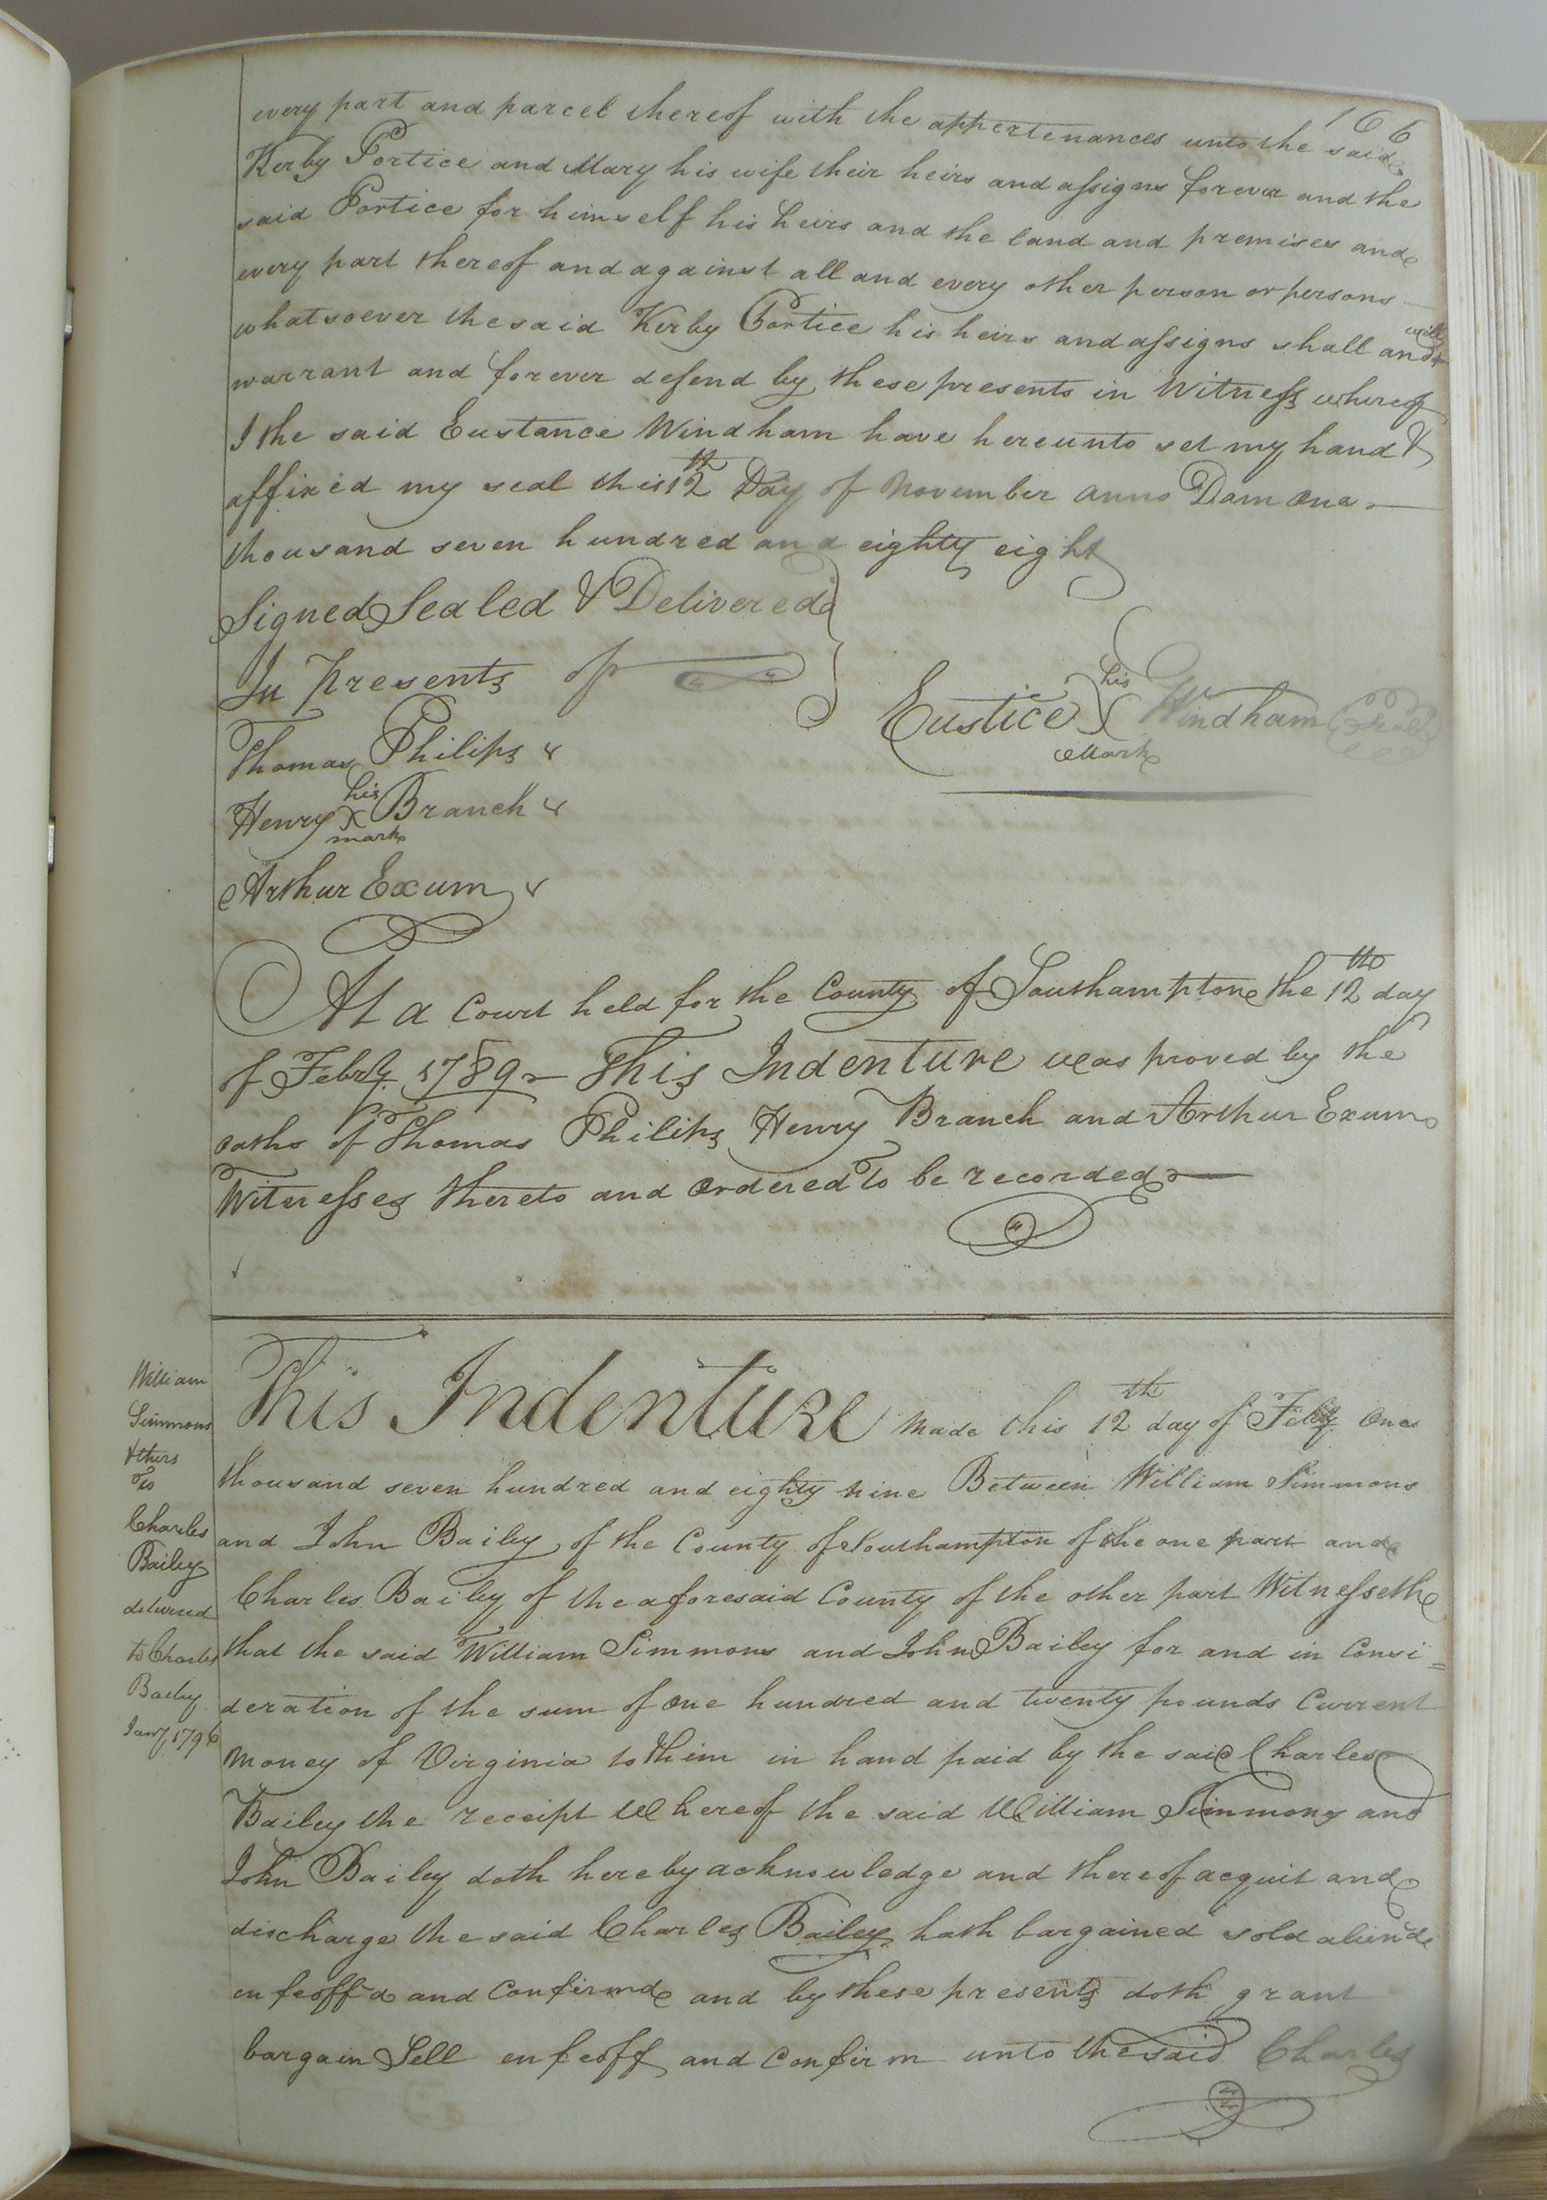 166
every part and parcel thereof with the appertenances unto the said
Kerby Portice and Mary his wife their heirs and assigns forever and the
said Portice for himself his heirs and the land and premises and
every part thereof and against all and every other person or persons
whatsoever the said Kerby Portice his heirs and assigns shall and will
warrant and forever defend by these presents in Witness whereof
I the said Eustance Windham have hereunto set my hand &
affixed my seal this 12th Day of November anno Dom One
thousand seven hundred and eighty eight
Signed Sealed & Delivered
In presents of
Eustice his X mark Windham (Seal)
Thomas Philips
Henry his X mark Branch
Arthur Exum
At a Court held for the County of Southampton the 12th day
of Febry 1789 This Indenture was proved by the
oaths of Thomas Philips Henry Branch and Arthur Exum
Witnesses thereto and ordered to be recorded
William
Simmons
&thers
To
Charles
Bailey
delivered
to Charles
Bailey
Jany 1796
This Indenture made this 12th day of Feby One
thousand seven hundred and eighty nine Between William Simmons
and John Bailey of the County of Southampton of the one part and
Charles Bailey of the aforesaid County of the other part Witnesseth
that the said William Simmons and John Bailey for and in Consi=
deration of the sum of One hundred and twenty pounds Current
Money of Virginia to them in hand paid by the said Charles
Bailey the receipt Whereof the said William Simmons and
John Bailey doth hereby acknowledge and thereof acquit and
discharge the said Charles Bailey hath bargained sold alien'd
enfeoff'd and Confirmd and by these presents doth grant
bargain Sell enfeoff and Confirm unto the said Charles